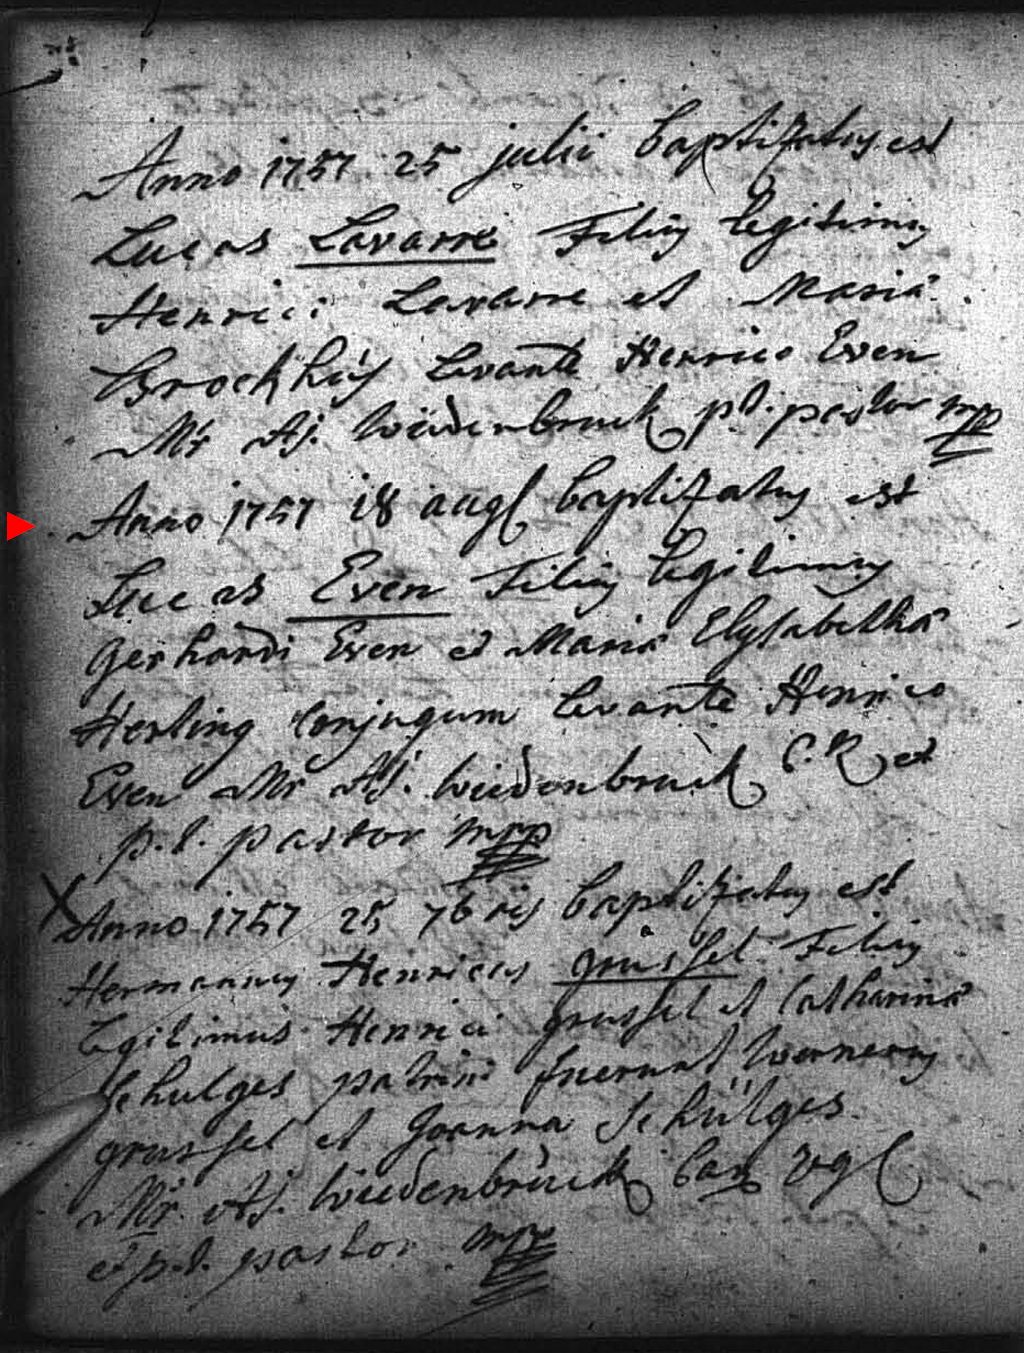 Anno 1757 25 julii baptizatus est
Lucas Lavarre Filius legitimus
Henrici Lavarre et Maria
Brockhüs levante Henrico Even
Mr Aj. Wiedenbruck pt. pastor mpp
Anno 1757 18 aug baptizatus est
Lucas Even Filius legitimus
Gerhardi Even et Maria Elysabetha
Herling Conjugum levante Henrico
Even Mr Aj. Wiedenbruck C. R et
p. t. pastor mpp
X
Anno 1757 25 7bris baptizatus est
Hermannus Henricus grussel Filius
legitimus Henrici grussel et Catharina
Schulges patrini fuerunt Wernerus
grussel et Joanna Schülges
Mr. Aj. Wiedenbrück Can
et p. t. pastor mpp